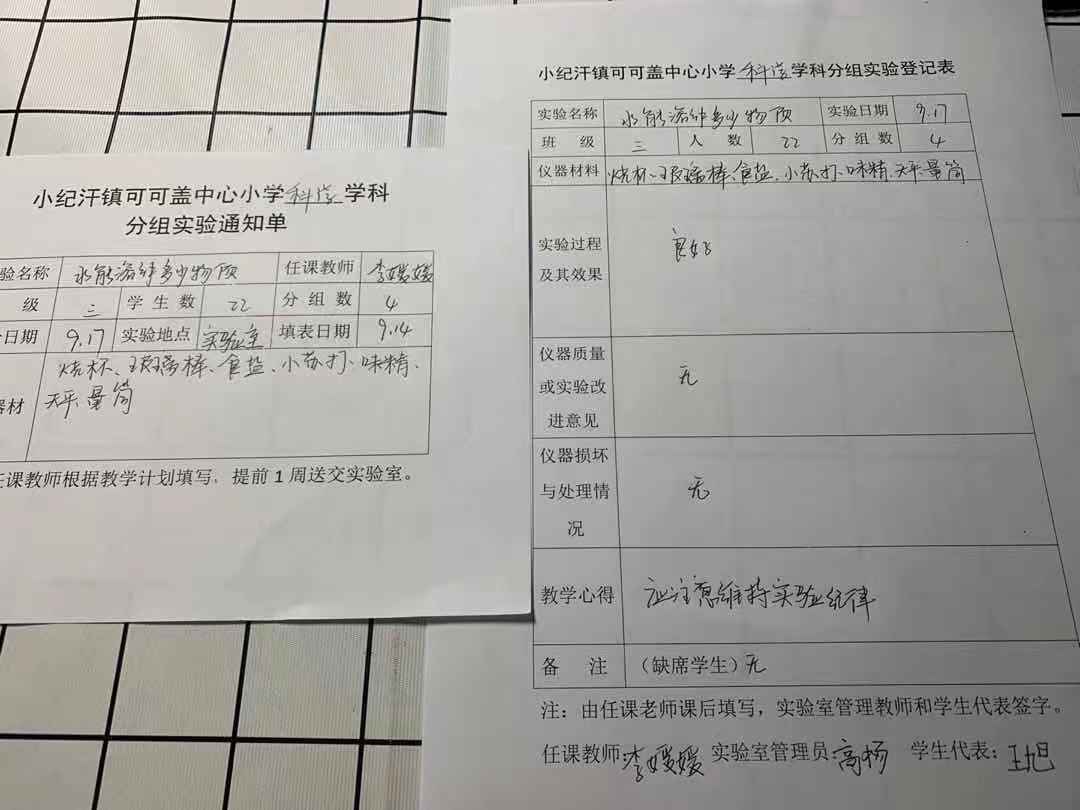 小纪汗镇可可盖中心小学科学学科
分组实验通知单
验名称 水能溶解多少物质 任课教师 李媛媛
级 三 学生数 22 分组数 4
日期 9.17 实验地点 实验室 填表日期 9.14
器材 烧杯、玻璃棒、食盐、小苏打、味精、
天平、量筒
任课教师根据教学计划填写，提前1周送交实验室。
小纪汗镇可可盖中心小学科学学科分组实验登记表
实验名称 水能溶解多少物质 实验日期 9.17
班级 三 人数 22 分组数 4
仪器材料 烧杯、玻璃棒、食盐、小苏打、味精、天平、量筒
实验过程
及其效果
良好
仪器质量
或实验改
进意见
无
仪器损坏
与处理情
况
无
教学心得 应注意维持实验纪律
备注 （缺席学生）无
注：由任课老师课后填写，实验室管理教师和学生代表签字。
任课教师:李媛媛 实验室管理员:高杨 学生代表：王旭